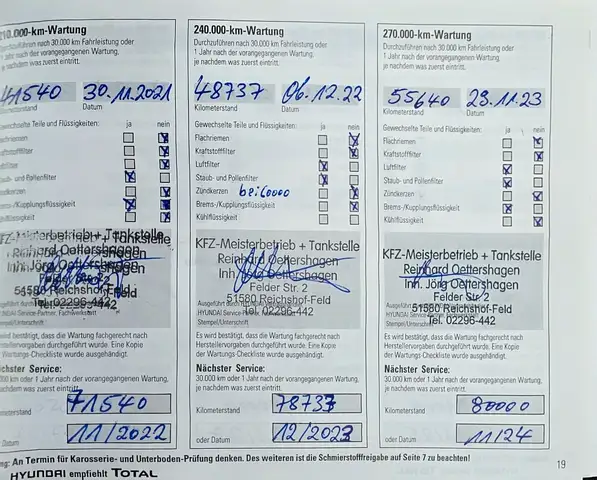 210.000-km-Wartung
Durchzuführen nach 30.000 km Fahrleistung oder
1 Jahr nach der vorangegangenen Wartung,
je nachdem was zuerst eintritt.
41540 30.11.2021
Kilometerstand Datum
Gewechselte Teile und Flüssigkeiten: ja nein
Flachriemen
Kraftstofffilter
Luftfilter
Staub- und Pollenfilter
Zündkerzen
Brems-/Kupplungsflüssigkeit
Kühlflüssigkeit
KFZ-Meisterbetrieb + Tankstelle
Reinhard Oettershagen
Inh. Jörg Oettershagen
51580 Reichshof-Feld
Tel. 02296-442
HYUNDAI Service-Partner, Fachwerkstatt
Stempel/Unterschrift
Es wird bestätigt, dass die Wartung fachgerecht nach
Herstellervorgaben durchgeführt wurde. Eine Kopie
der Wartungs-Checkliste wurde ausgehändigt.
Nächster Service:
30.000 km oder 1 Jahr nach der vorangegangenen Wartung,
je nachdem was zuerst eintritt.
Kilometerstand 71540
oder Datum 11/2022
240.000-km-Wartung
Durchzuführen nach 30.000 km Fahrleistung oder
1 Jahr nach der vorangegangenen Wartung,
je nachdem was zuerst eintritt.
48737 06.12.22
Kilometerstand Datum
Gewechselte Teile und Flüssigkeiten: ja nein
Flachriemen
Kraftstofffilter
Luftfilter
Staub- und Pollenfilter
Zündkerzen
Brems-/Kupplungsflüssigkeit
Kühlflüssigkeit
KFZ-Meisterbetrieb + Tankstelle
Reinhard Oettershagen
Inh. Jörg Oettershagen
Felder Str. 2
51580 Reichshof-Feld
Tel. 02296-442
Stempel/Unterschrift
Es wird bestätigt, dass die Wartung fachgerecht nach
Herstellervorgaben durchgeführt wurde. Eine Kopie
der Wartungs-Checkliste wurde ausgehändigt.
Nächster Service:
30.000 km oder 1 Jahr nach der vorangegangenen Wartung,
je nachdem was zuerst eintritt.
Kilometerstand 78737
oder Datum 12/2023
270.000-km-Wartung
Durchzuführen nach 30.000 km Fahrleistung oder
1 Jahr nach der vorangegangenen Wartung,
je nachdem was zuerst eintritt.
55640 23.11.23
Kilometerstand Datum
Gewechselte Teile und Flüssigkeiten: ja nein
Flachriemen
Kraftstofffilter
Luftfilter
Staub- und Pollenfilter
Zündkerzen
Brems-/Kupplungsflüssigkeit
Kühlflüssigkeit
KFZ-Meisterbetrieb + Tankstelle
Reinhard Oettershagen
Inh. Jörg Oettershagen
Felder Str. 2
51580 Reichshof-Feld
Tel. 02296-442
Stempel/Unterschrift
Es wird bestätigt, dass die Wartung fachgerecht nach
Herstellervorgaben durchgeführt wurde. Eine Kopie
der Wartungs-Checkliste wurde ausgehändigt.
Nächster Service:
30.000 km oder 1 Jahr nach der vorangegangenen Wartung,
je nachdem was zuerst eintritt.
Kilometerstand 80000
oder Datum 11/24
An Termin für Karosserie- und Unterboden-Prüfung denken. Des weiteren ist die Schmierstofffreigabe auf Seite 7 zu beachten!
19
HYUNDAI empfiehlt TOTAL